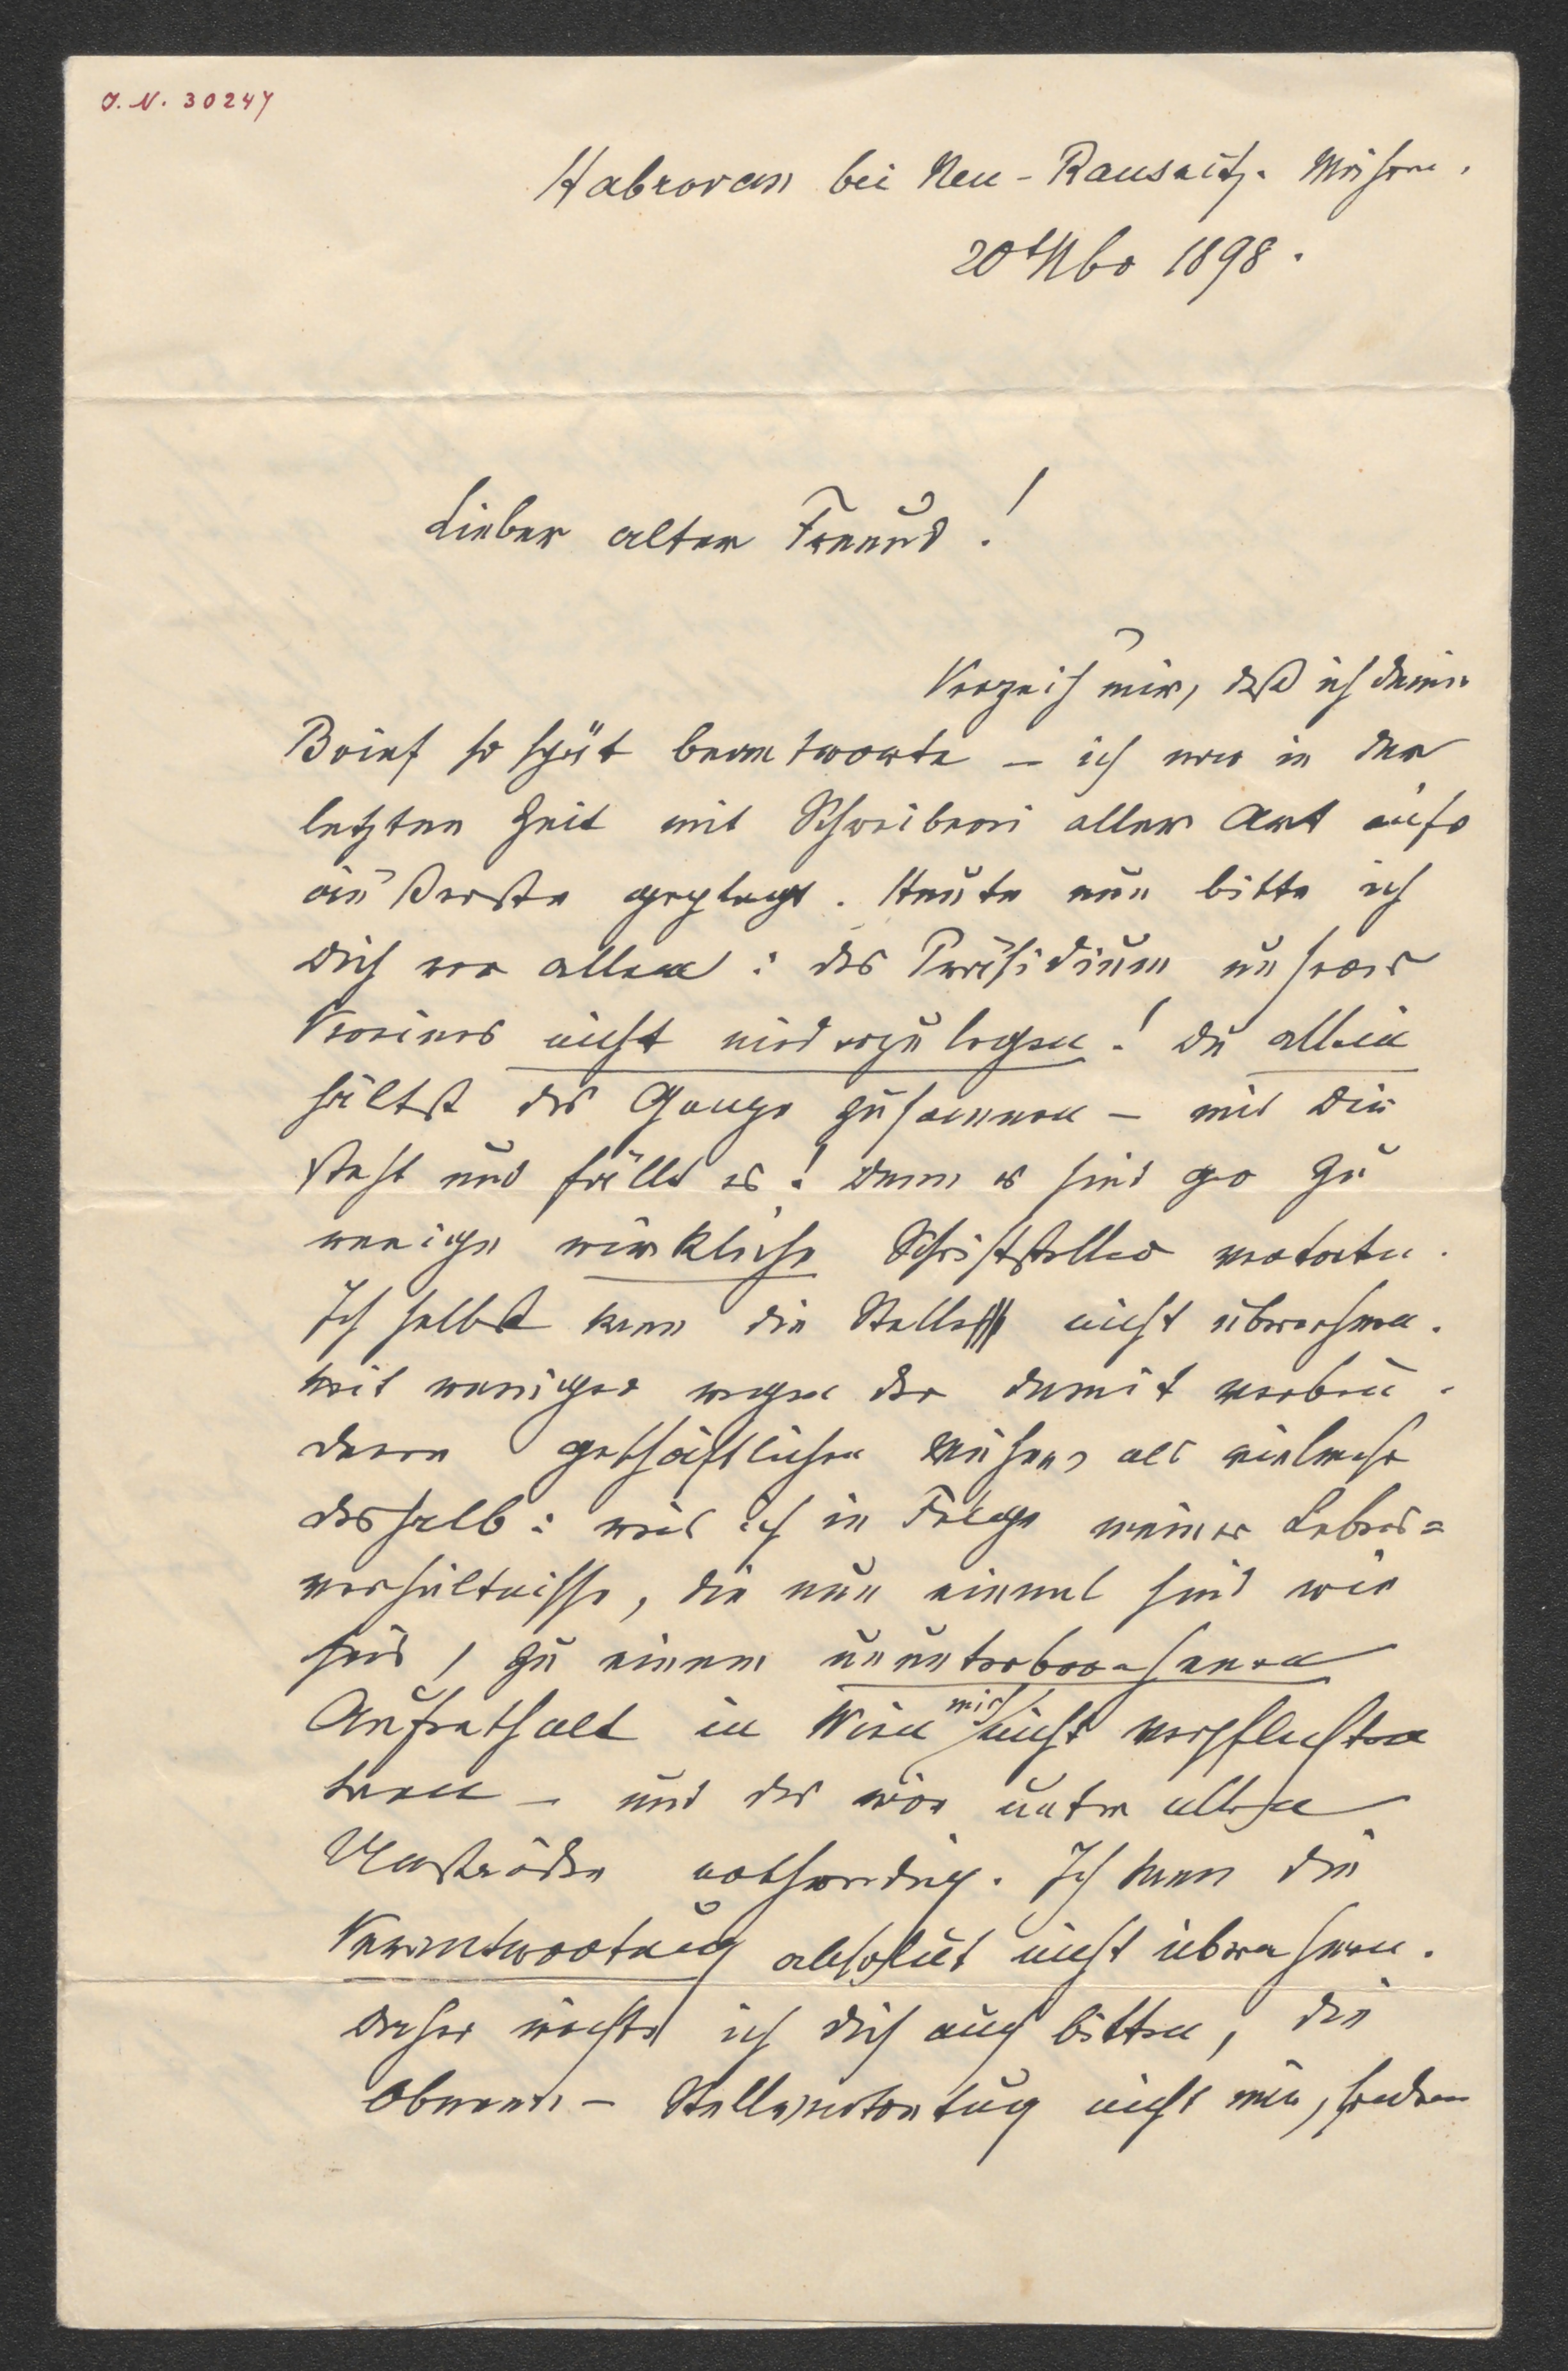 J. N. 30247
Habrovan bei Neu-Rausnitz. Mähren.
20t Nbr 1898.
Lieber alter Freund!
Verzeih mir, daß ich deinen
Brief so spät beantworte – ich war in der
letzten Zeit mit Schreiberei aller Art aufs
äußerste geplagt. Heute nun bitte ich
Dich vor allem: das Präsidium unseres
Vereines nicht niederzulegen! Du allein
hältst das Ganze zusammen – mit Dir
steht und fällt es! Denn es sind gar zu
wenige wirkliche Schriftsteller vertreten.
Ich selbst kann die Stelle nicht übernehmen.
Weit weniger wegen der damit verbun-
denen geschäftlichen Mühen, als vielmehr
deshalb: weil ich in Folge meiner Lebens=
verhältnisse, die nun einmal sind wie
sie sind, zu einem ununterbrochenen
Aufenthalt in Wien mich nicht verpflichten
kann – und das wär unter allen
Umständen nothwendig. Ich kann die
Verantwortung absolut nicht übernehmen.
Daher möchte ich Dich auch bitten, die
Obmann-Stellvertretung nicht mir, sondern